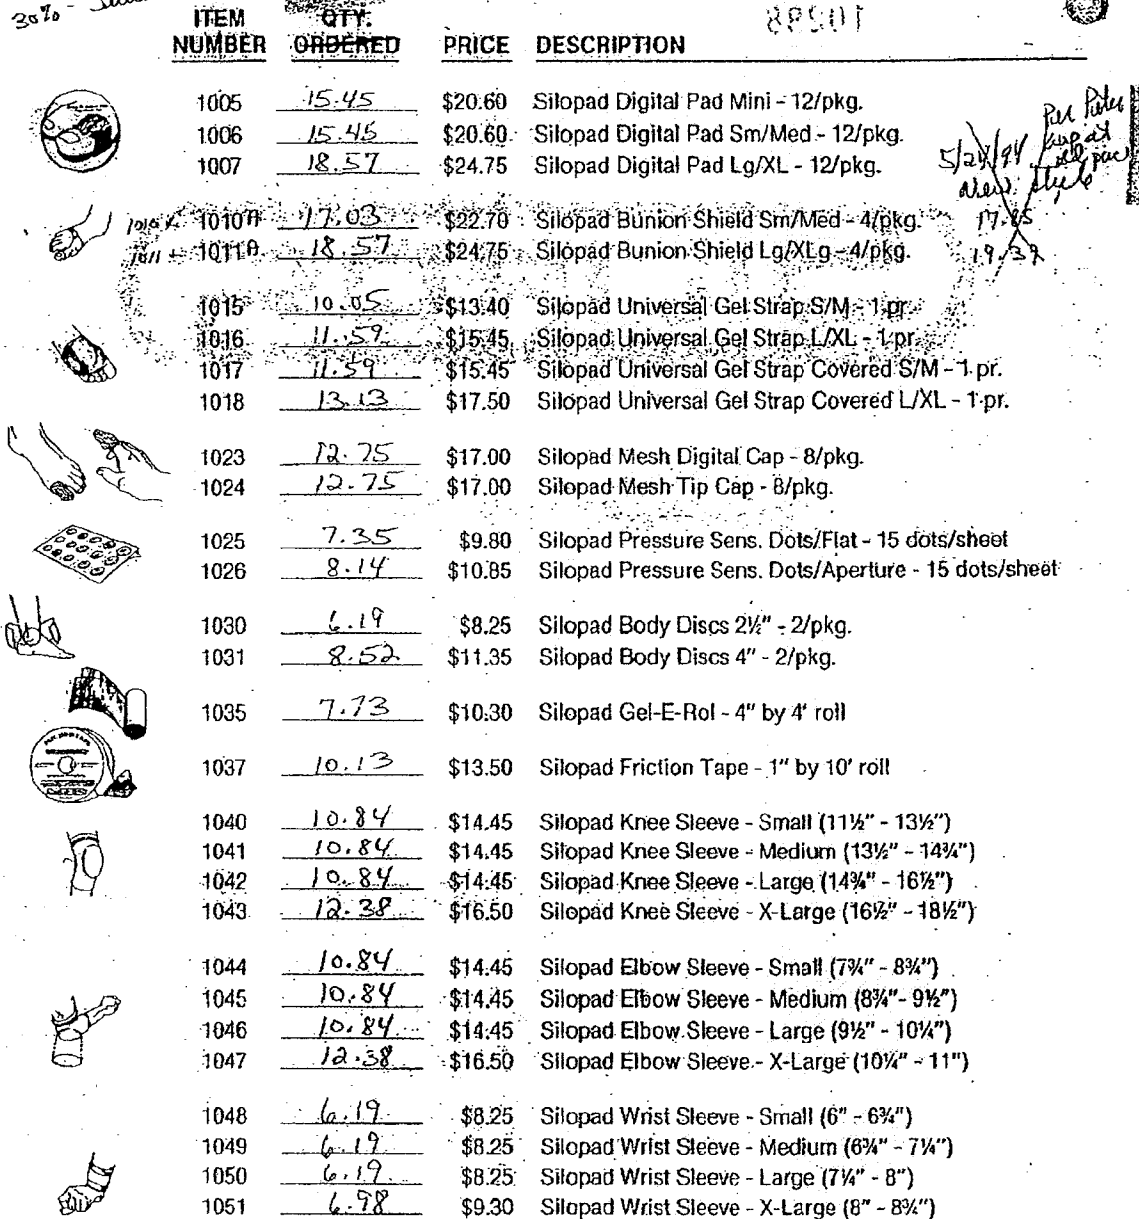 30% -
ITEM NUMBER QTY. ORDERED PRICE DESCRIPTION
1005 15.45 $20.60 Silopad Digital Pad Mini - 12/pkg.
1006 15.45 $20.60 Silopad Digital Pad Sm/Med - 12/pkg.
1007 18.57 $24.75 Silopad Digital Pad Lg/XL - 12/pkg.
5/24/94
new style
1010A 17.03 $22.70 Silopad Bunion Shield Sm/Med - 4/pkg. 17.85
1011A 18.57 $24.75 Silopad Bunion Shield Lg/XLg - 4/pkg. 19.39
1015 10.05 $13.40 Silopad Universal Gel Strap S/M - 1 pr.
1016 11.59 $15.45 Silopad Universal Gel Strap L/XL - 1 pr.
1017 11.59 $15.45 Silopad Universal Gel Strap Covered S/M - 1 pr.
1018 13.13 $17.50 Silopad Universal Gel Strap Covered L/XL - 1 pr.
1023 12.75 $17.00 Silopad Mesh Digital Cap - 8/pkg.
1024 12.75 $17.00 Silopad Mesh Tip Cap - 8/pkg.
1025 7.35 $9.80 Silopad Pressure Sens. Dots/Flat - 15 dots/sheet
1026 8.14 $10.85 Silopad Pressure Sens. Dots/Aperture - 15 dots/sheet
1030 6.19 $8.25 Silopad Body Discs 2½" - 2/pkg.
1031 8.52 $11.35 Silopad Body Discs 4" - 2/pkg.
1035 7.73 $10.30 Silopad Gel-E-Rol - 4" by 4' roll
1037 10.13 $13.50 Silopad Friction Tape - 1" by 10' roll
1040 10.84 $14.45 Silopad Knee Sleeve - Small (11½" - 13½")
1041 10.84 $14.45 Silopad Knee Sleeve - Medium (13½" - 14¾")
1042 10.84 $14.45 Silopad Knee Sleeve - Large (14¾" - 16½")
1043 12.38 $16.50 Silopad Knee Sleeve - X-Large (16½" - 18½")
1044 10.84 $14.45 Silopad Elbow Sleeve - Small (7¾" - 8¾")
1045 10.84 $14.45 Silopad Elbow Sleeve - Medium (8¾" - 9½")
1046 10.84 $14.45 Silopad Elbow Sleeve - Large (9½" - 10¼")
1047 12.38 $16.50 Silopad Elbow Sleeve - X-Large (10¼" - 11")
1048 6.19 $8.25 Silopad Wrist Sleeve - Small (6" - 6¾")
1049 6.19 $8.25 Silopad Wrist Sleeve - Medium (6¾" - 7¼")
1050 6.19 $8.25 Silopad Wrist Sleeve - Large (7¼" - 8")
1051 6.98 $9.30 Silopad Wrist Sleeve - X-Large (8" - 8¾")